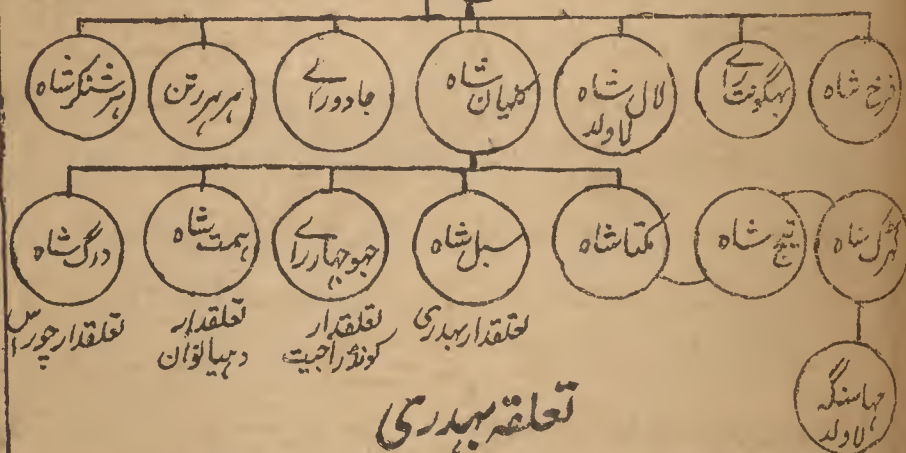 فرخ شاہ
بہگونت راے
لال شاہ
لاولد
کلیان شاہ
جادوراے
ہرہررتن
ہرشنکرشاہ
کھڑگ شاہ
تیج شاہ
مکتا شاہ
سبل شاہ
جہوجہارراے
ہمت شاہ
درگ شاہ
تعلقدار بہدری
تعلقدار
کونڈراجیت
تعلقدار
دہیانوان
تعلقدار چوراس
مہاسنگہ
لاولد
تعلقہ بہدری